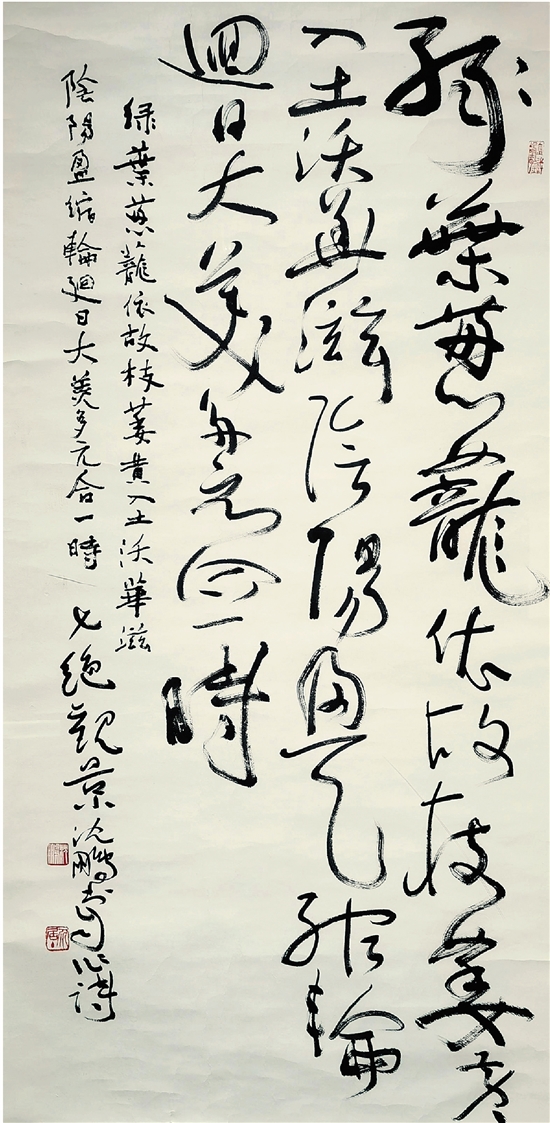 綠葉葱蘢依故枝萎黄
入土沃華滋陰陽盈縮輪
迴日大美多元合一時
绿葉葱蘢依故枝萎黄入土沃華滋
陰陽盈縮輪迴日大美多元合一時 七絶觀景沈鵬書自作詩